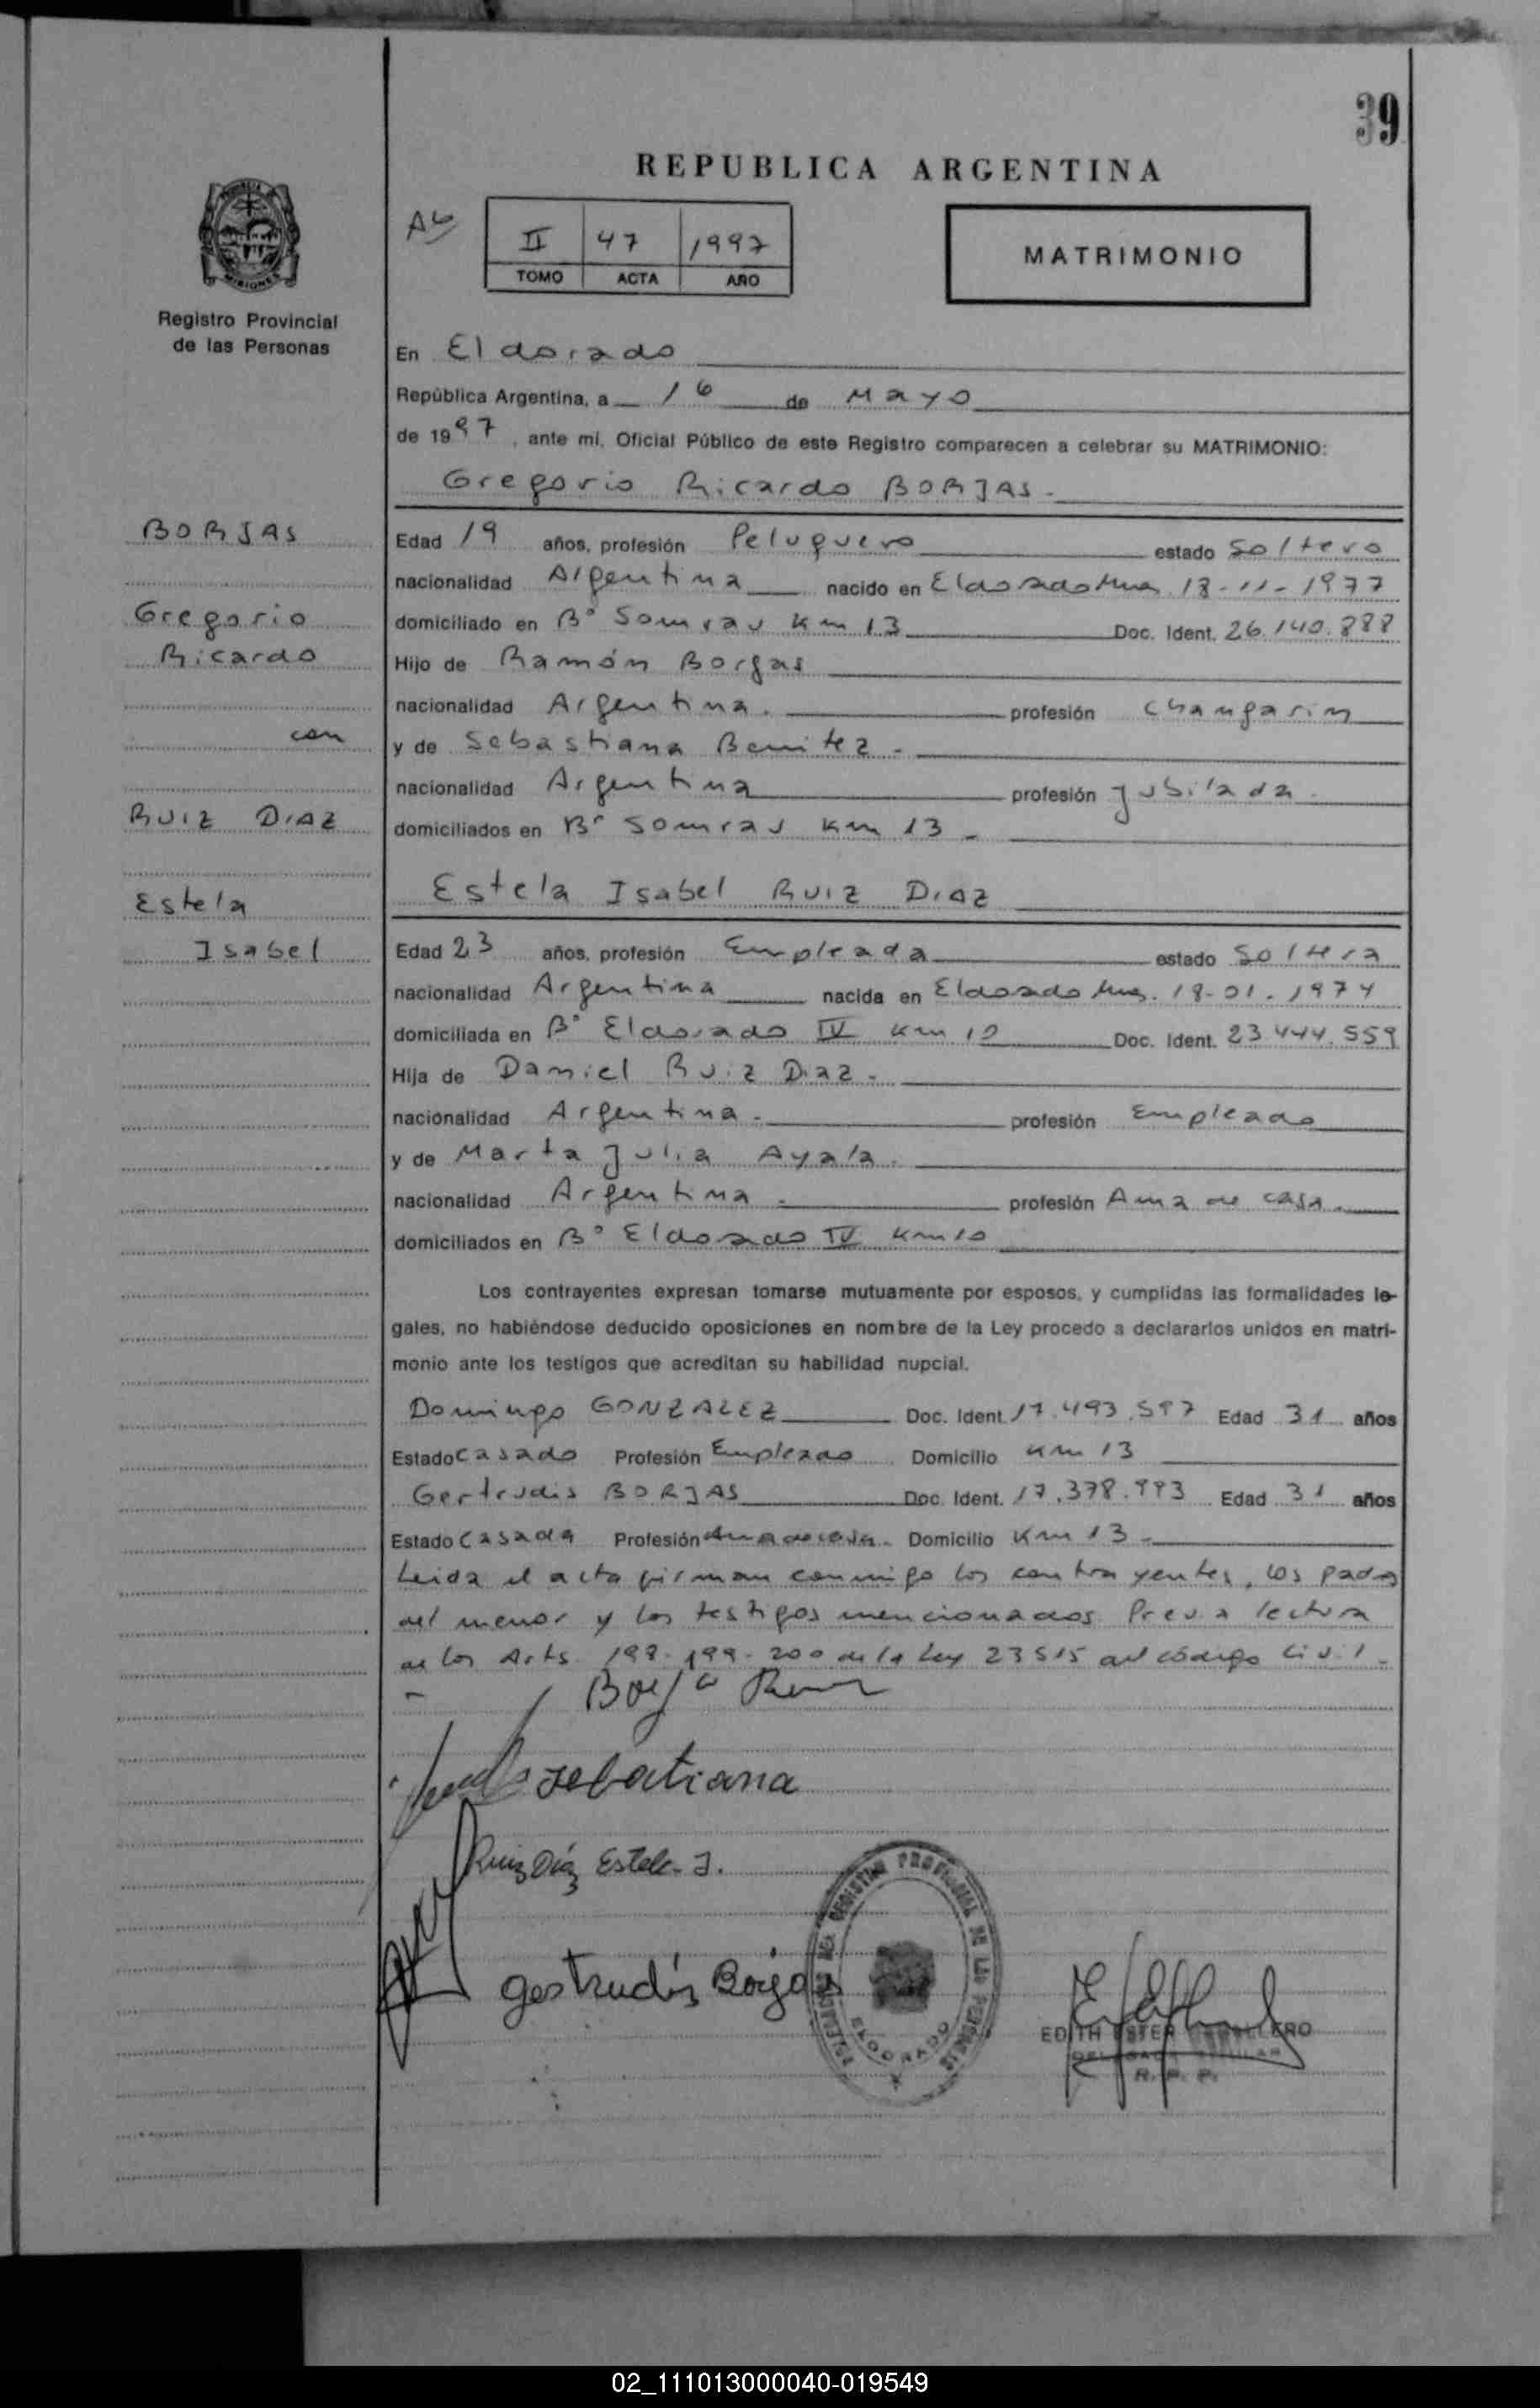 39
REPUBLICA ARGENTINA
II 47 1997
TOMO ACTA AÑO
MATRIMONIO
MISIONES
Registro Provincial
de las Personas
En Eldorado
República Argentina, a 16 de Mayo
de 1997, ante mí, Oficial Público de este Registro comparecen a celebrar su MATRIMONIO:
Gregorio Ricardo BORJAS.-
BORJAS
Gregorio
Ricardo
con
RUIZ DIAZ
Estela
Isabel
Edad 19 años, profesión Peluquero estado Soltero
nacionalidad Argentina nacido en Eldorado Mnes. 18-11-1977
domiciliado en B° Km 13 Doc. Ident. 26.140.888
Hijo de Ramón Borjas
nacionalidad Argentina. profesión Changarin
y de Sebastiana Benitez.-
nacionalidad Argentina profesión Jubilada.
domiciliados en B° Km 13.-
Estela Isabel RUIZ DIAZ
Edad 23 años, profesión Empleada estado Soltera
nacionalidad Argentina nacida en Eldorado Mnes. 18-01-1974
domiciliada en B° Eldorado IV Km 10 Doc. Ident. 23.444.559
Hija de Daniel Ruiz Diaz.-
nacionalidad Argentina.- profesión Empleado
y de Marta Julia Ayala.
nacionalidad Argentina.- profesión Ama de casa.
domiciliados en B° Eldorado IV Km 10
Los contrayentes expresan tomarse mutuamente por esposos, y cumplidas las formalidades le-
gales, no habiéndose deducido oposiciones en nombre de la Ley procedo a declararlos unidos en matri-
monio ante los testigos que acreditan su habilidad nupcial.
Domingo GONZALEZ Doc. Ident. 17.493.597 Edad 31 años
Estado Casado Profesión Empleado Domicilio Km 13
Gertrudis BORJAS Doc. Ident. 17.378.993 Edad 31 años
Estado Casada Profesión Ama de casa. Domicilio Km 13.-
Leida el acta firman conmigo los contrayentes, los padres
del menor y los testigos mencionados. Previa lectura
de los Arts. 198-199-200 de la Ley 23515 del código Civil.-
sebatiana
Ruiz Díaz Estela I.
gertrudis Borjas
DELEGACION DEL REGISTRO PROVINCIAL DE LAS PERSONAS
ELDORADO
EDITH ESTER CABALLERO
DELEGADA TITULAR
R. P. P.
02_111013000040-019549